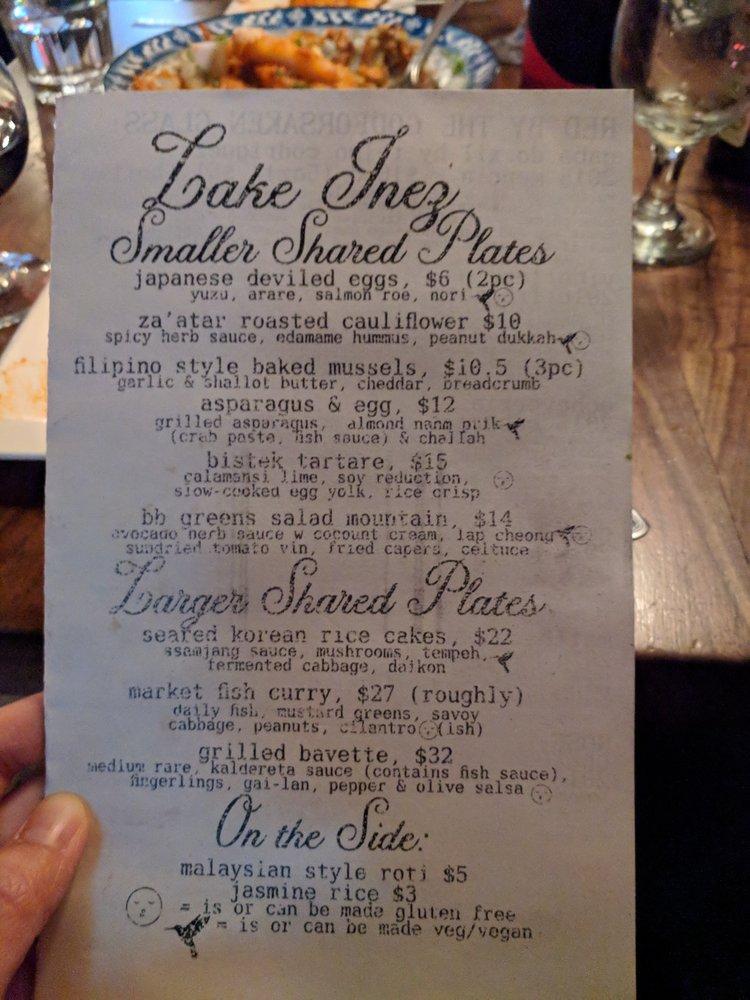 Lake Inez
Smaller Shared Plates
japanese deviled eggs, $6 (2pc)
yuzu, arare, salmon roe, nori
za'atar roasted cauliflower $10
spicy herb sauce, edamame hummus, peanut dukkah
filipino style baked mussels, $10.5 (3pc)
garlic & shallot butter, cheddar, breadcrumb
asparagus & egg, $12
grilled asparagus, almond nam prik
(crab paste, fish sauce) & challah
bistek tartare, $15
calamansi lime, soy reduction,
slow-cooked egg yolk, rice crisp
bb greens salad mountain, $14
avocado herb sauce w cocount cream, lap cheong
sundried tomato vin, fried capers, celtuce
Larger Shared Plates
seared korean rice cakes, $22
ssamjang sauce, mushrooms, tempeh,
fermented cabbage, daikon
market fish curry, $27 (roughly)
daily fish, mustard greens, savoy
cabbage, peanuts, cilantro (ish)
grilled bavette, $32
medium rare, kaldereta sauce (contains fish sauce),
fingerlings, gai-lan, pepper & olive salsa
On the Side:
malaysian style roti $5
jasmine rice $3
= is or can be made gluten free
= is or can be made veg/vegan